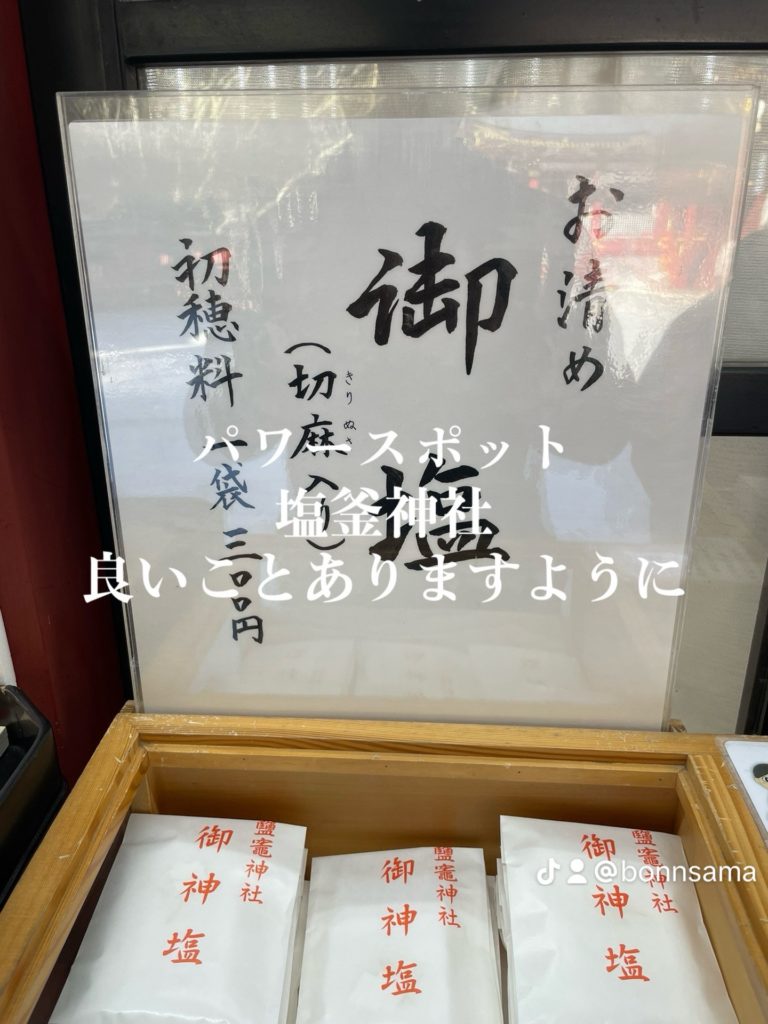 お清め
御塩
(切麻入り)
きりぬさ
初穂料 一袋 三〇〇円
パワースポット
塩釜神社
良いことありますように
鹽竈神社
御神塩
鹽竈神社
御神塩
鹽竈神社
御神塩
@bonnsama